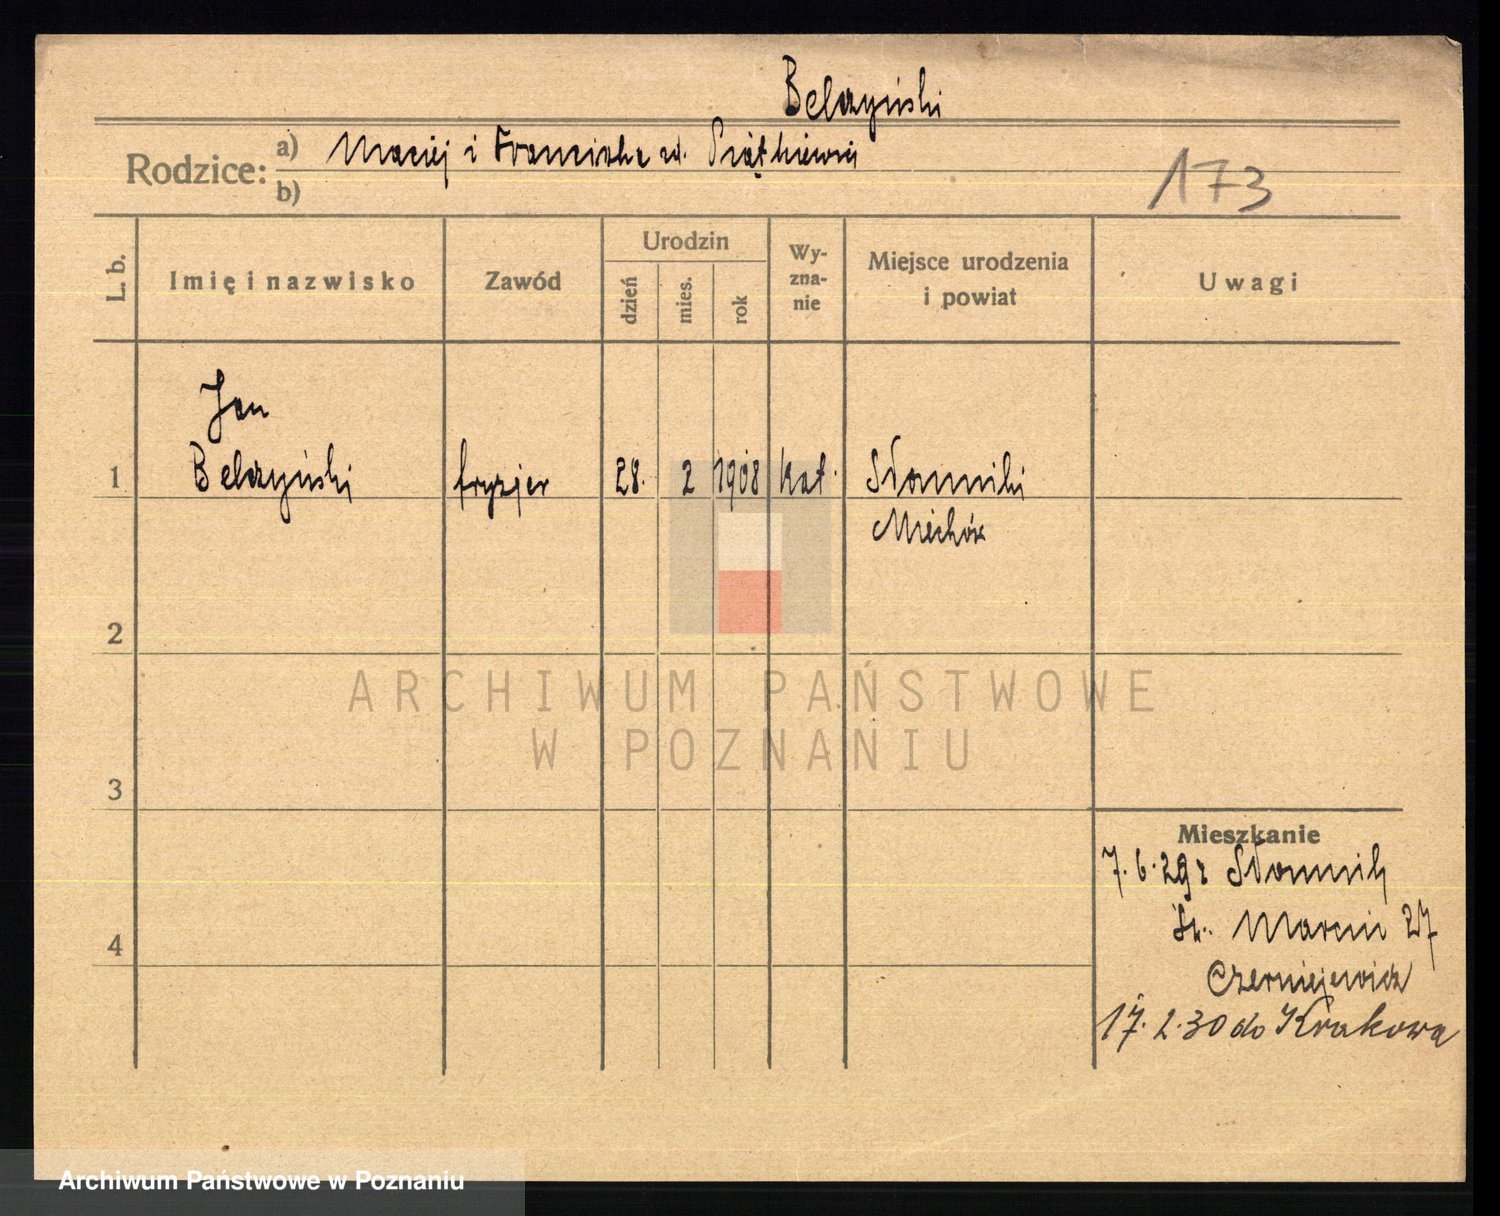 Belczyński
Rodzice: a) Maciej i Franciszka zd. Piątkiewicz
b)
173
L. b.
Imię i nazwisko
Zawód
Urodzin
dzień
mies.
rok
Wy-
zna-
nie
Miejsce urodzenia
i powiat
Uwagi
Jan
1 Belczyński fryzjer 28. 2 1908 kat. Słomniki
Miechów
2
ARCHIWUM PAŃSTWOWE
W POZNANIU
3
Mieszkanie
7.6.29 z Słomnik
Św. Marcin 27
4
Czerniejewicz
17.2.30 do Krakowa
Archiwum Państwowe w Poznaniu